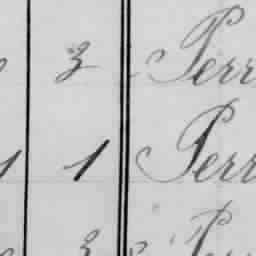 3 Perr
1 Perr
3